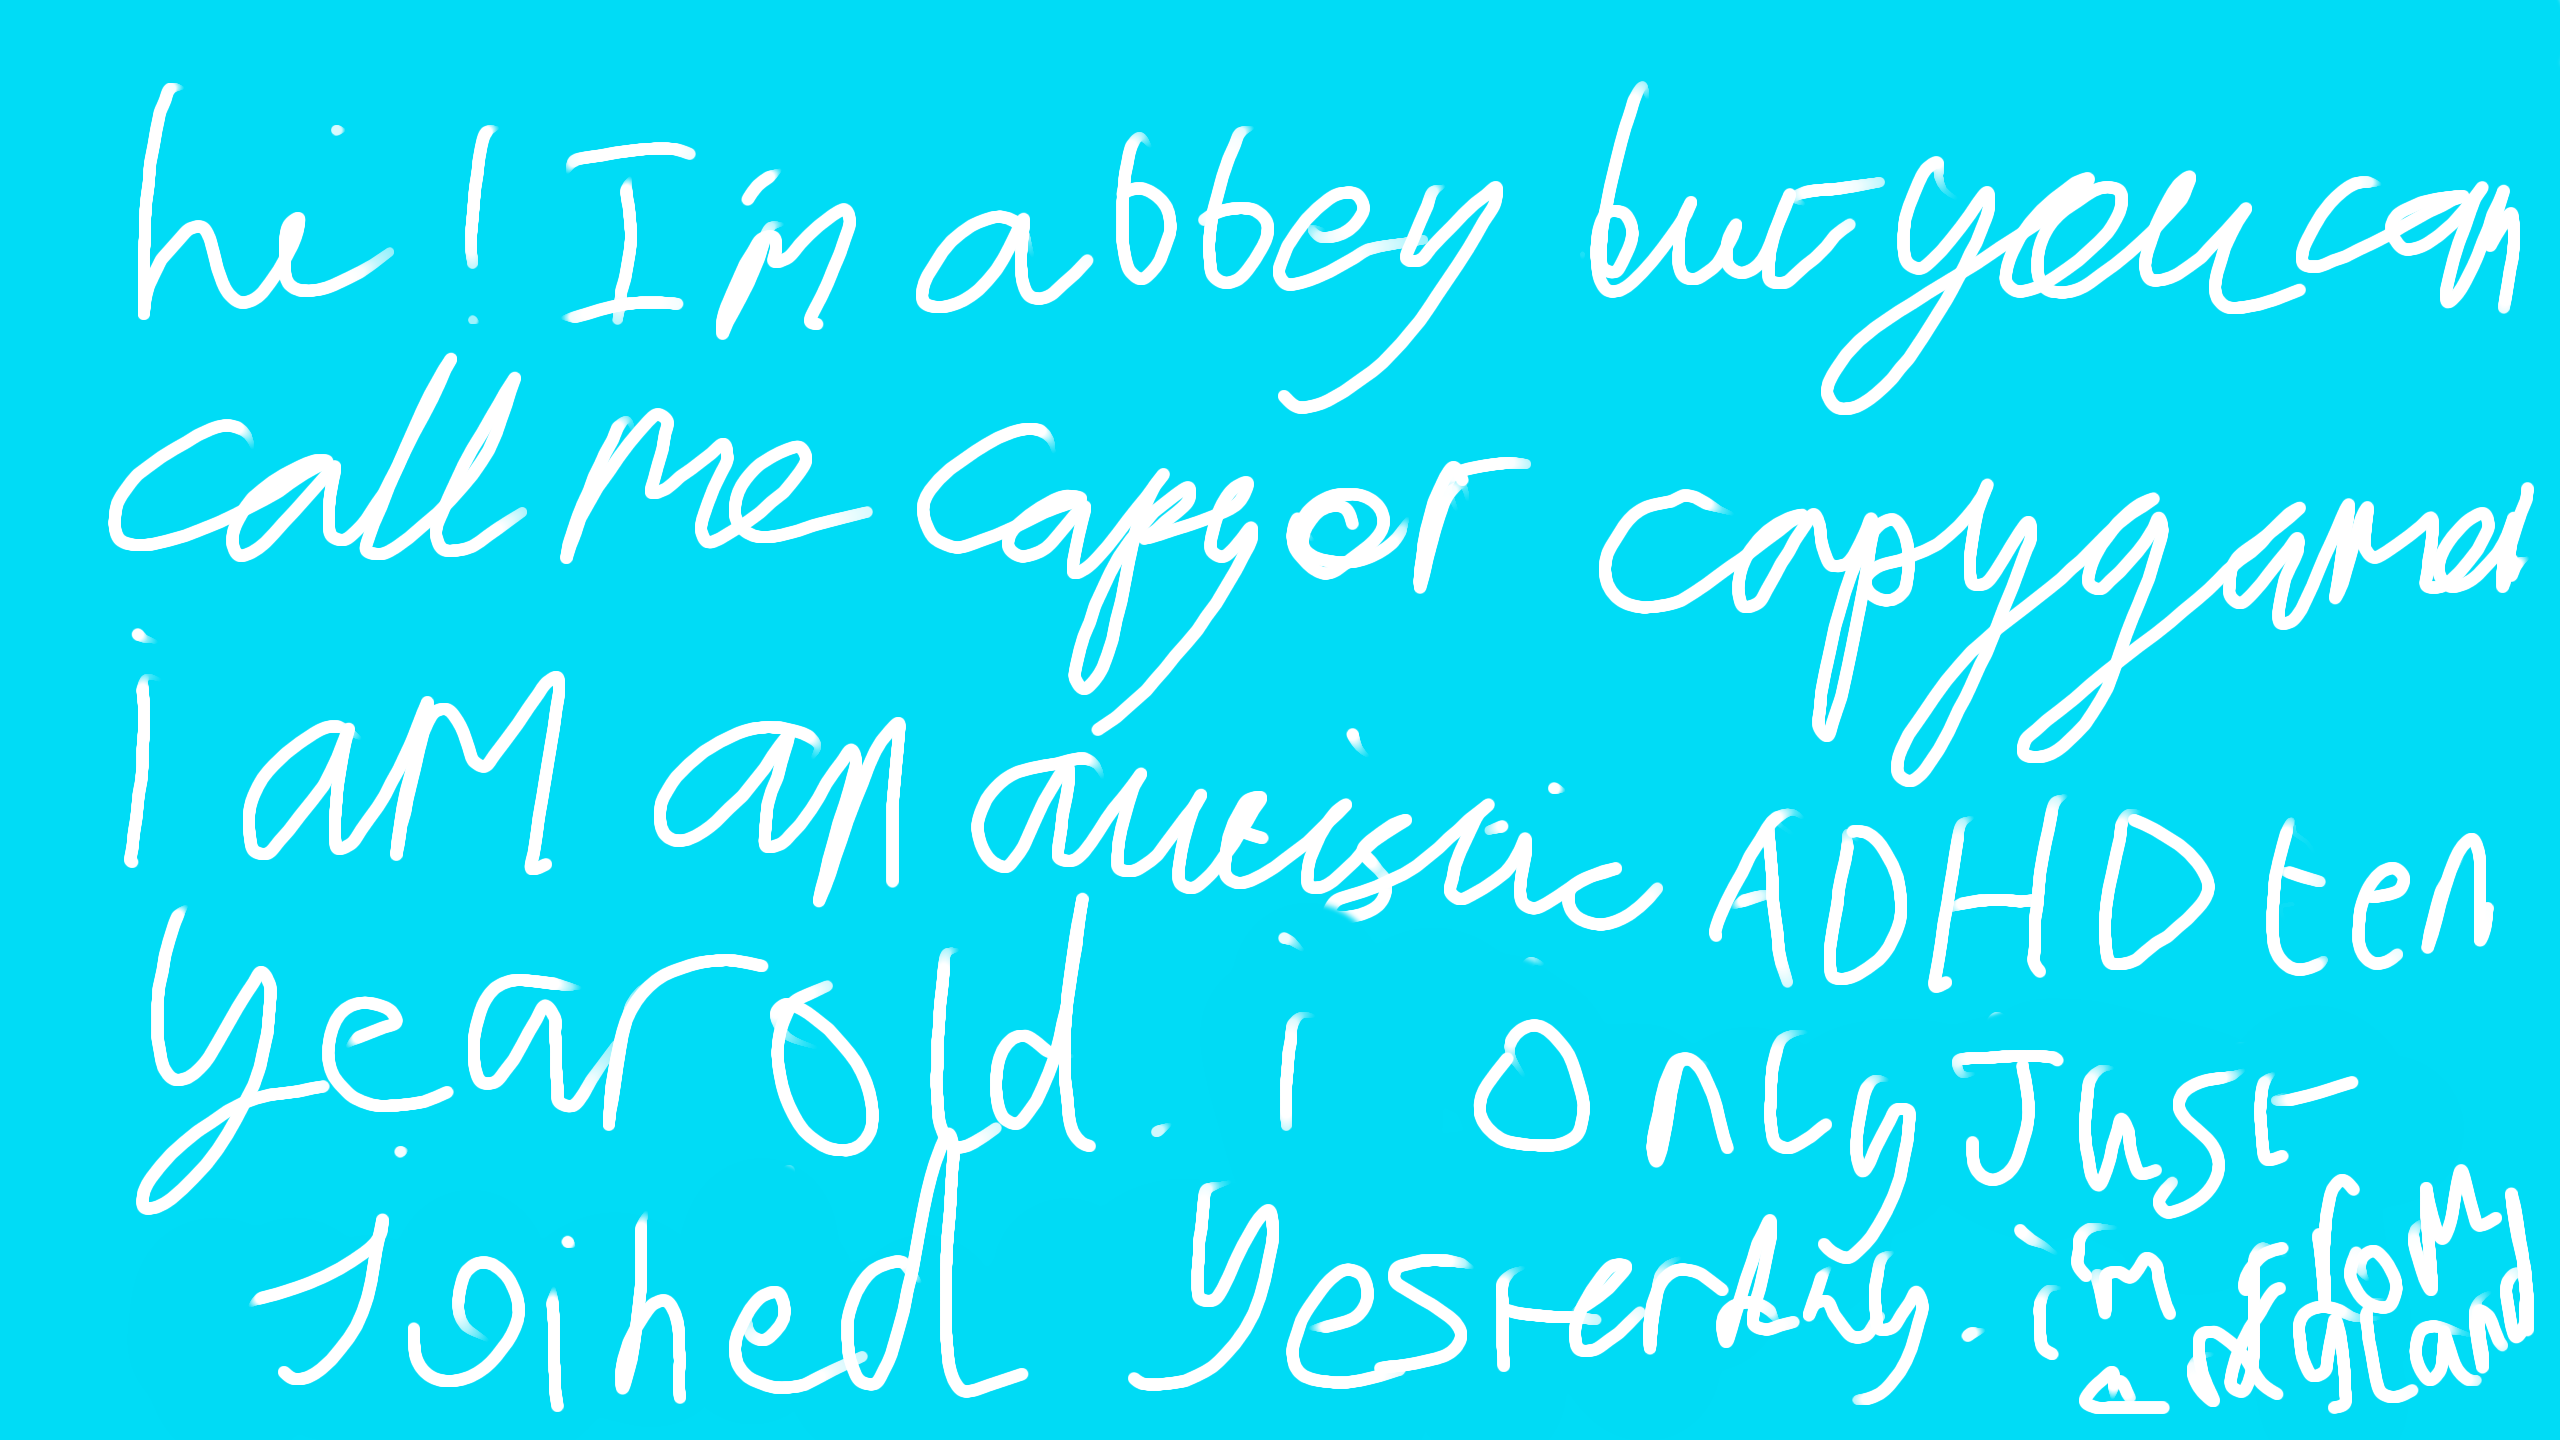 hi! I'm abbey but you can
call me capy or capygamer
i am an autistic ADHD ten
year old. i only Just
Joined yesterday. i'm from
england